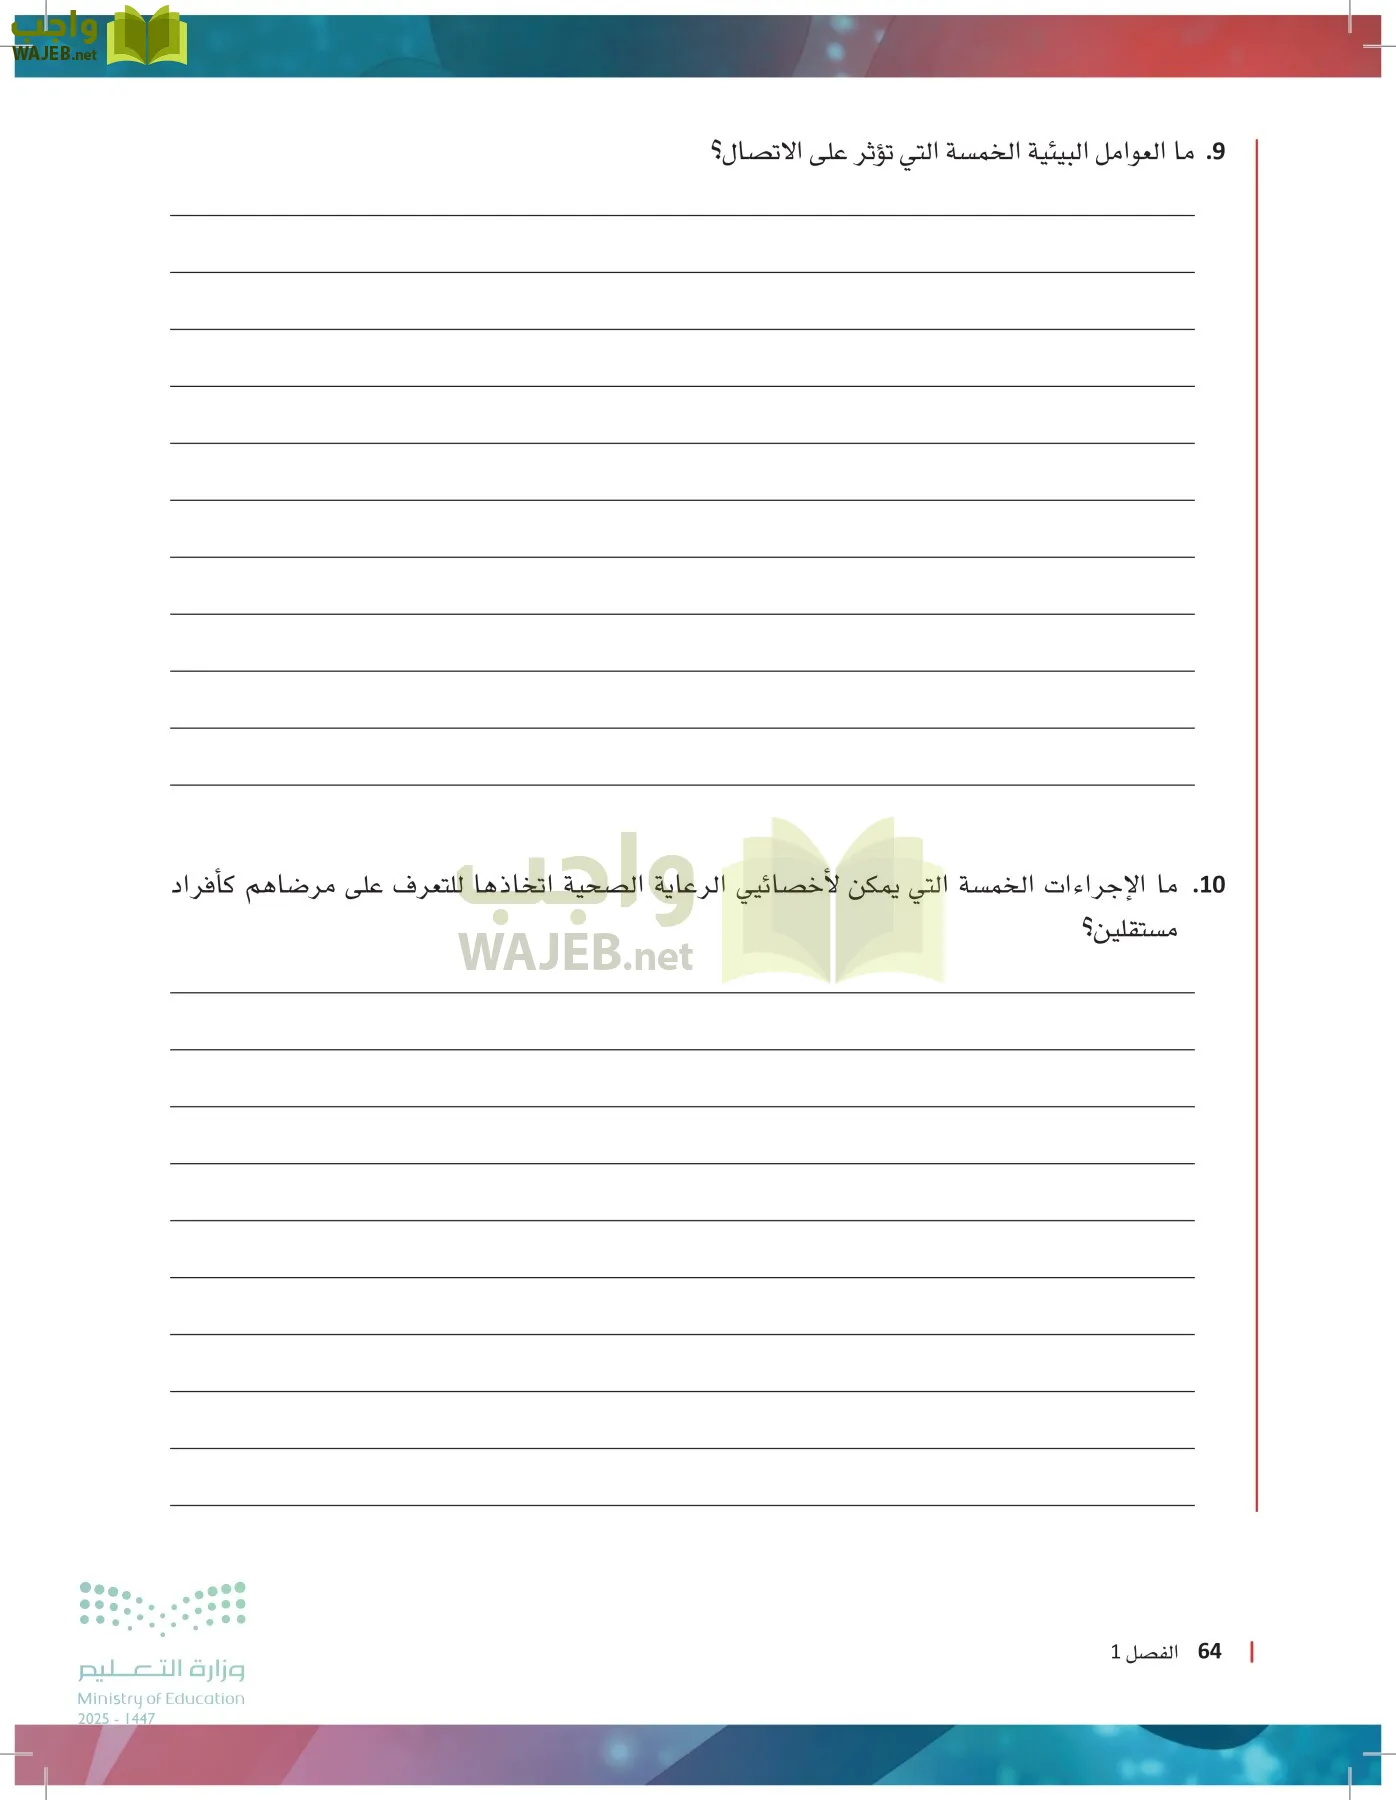 واجب
WAJEB.net
9. ما العوامل البيئية الخمسة التي تؤثر على الاتصال؟
10. ما الإجراءات الخمسة التي يمكن لأخصائيي الرعاية الصحية اتخاذها للتعرف على مرضاهم كأفراد
مستقلين؟
واجب
WAJEB.net
64 الفصل 1
وزارة التعليم
Ministry of Education
2025 - 1447